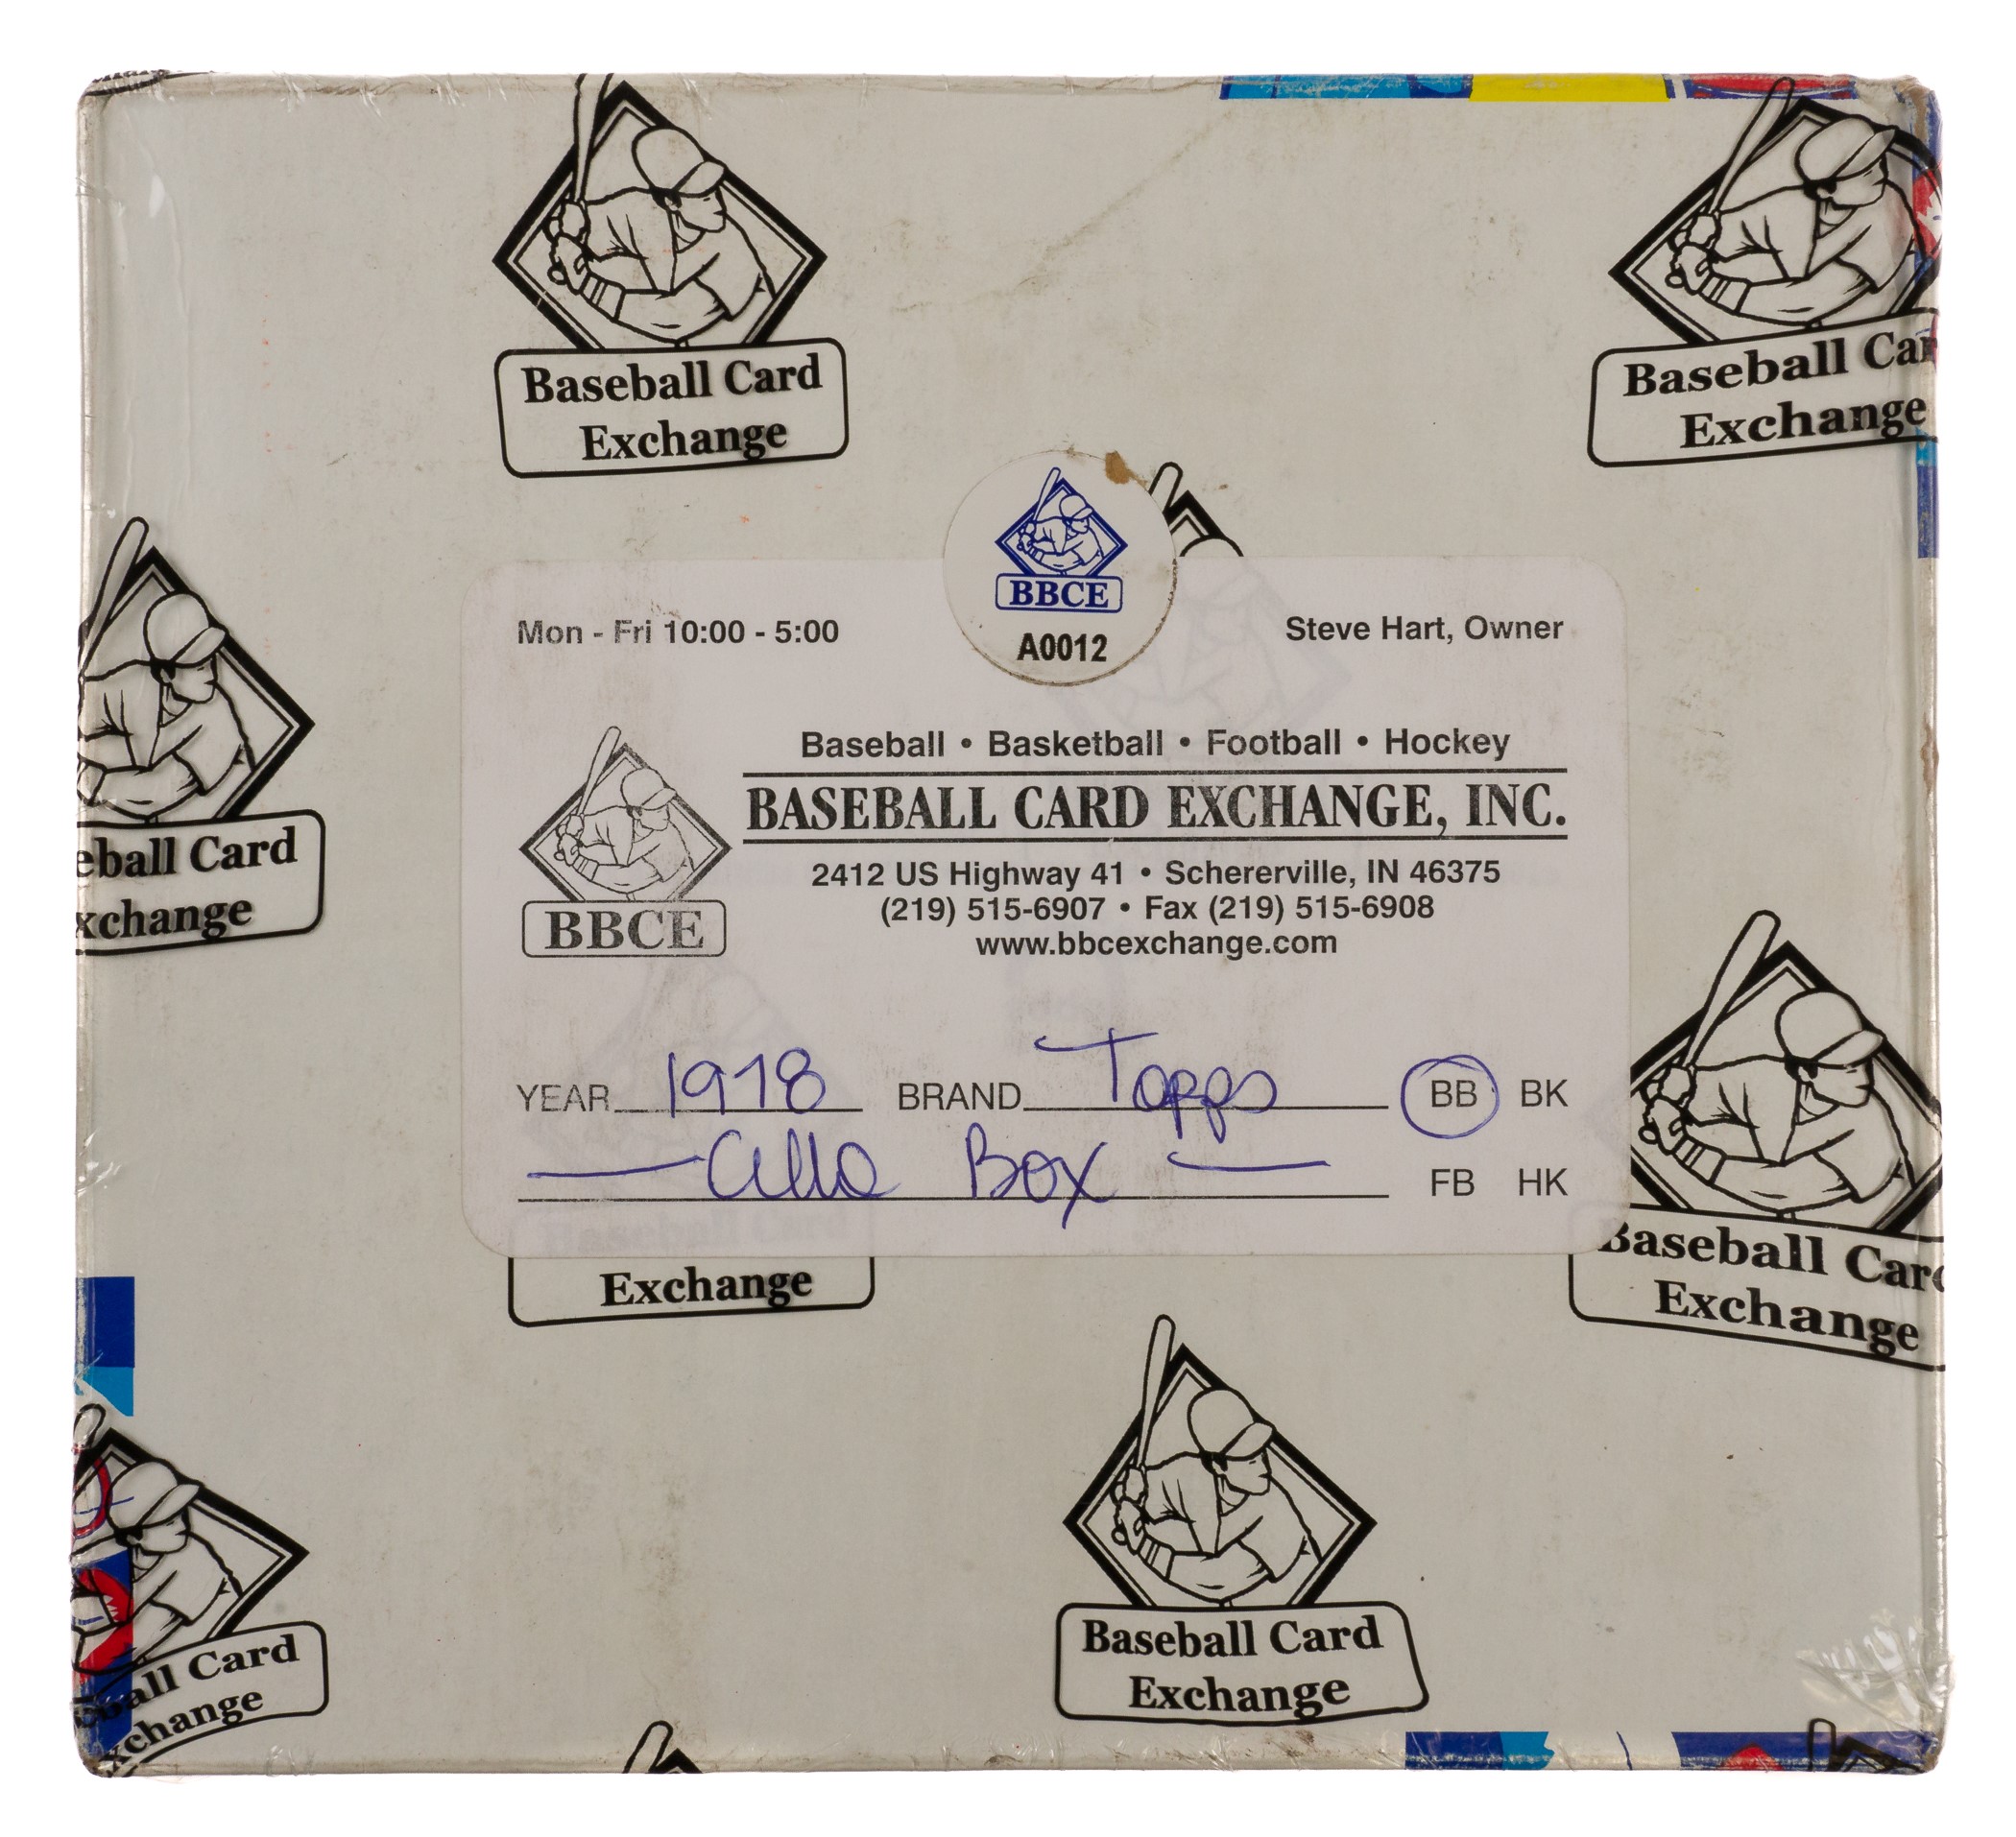 Baseball Card
Exchange
Baseball Car
Exchange
BBCE
A0012
Mon - Fri 10:00 - 5:00
Steve Hart, Owner
Baseball • Basketball • Football • Hockey
BASEBALL CARD EXCHANGE, INC.
2412 US Highway 41 • Schererville, IN 46375
(219) 515-6907 • Fax (219) 515-6908
www.bbcexchange.com
BBCE
eball Card
xchange
YEAR 1978 BRAND Topps BB BK
— Cello Box — FB HK
Baseball Card
Exchange
Baseball Card
Exchange
Baseball Card
Exchange
ball Card
xchange